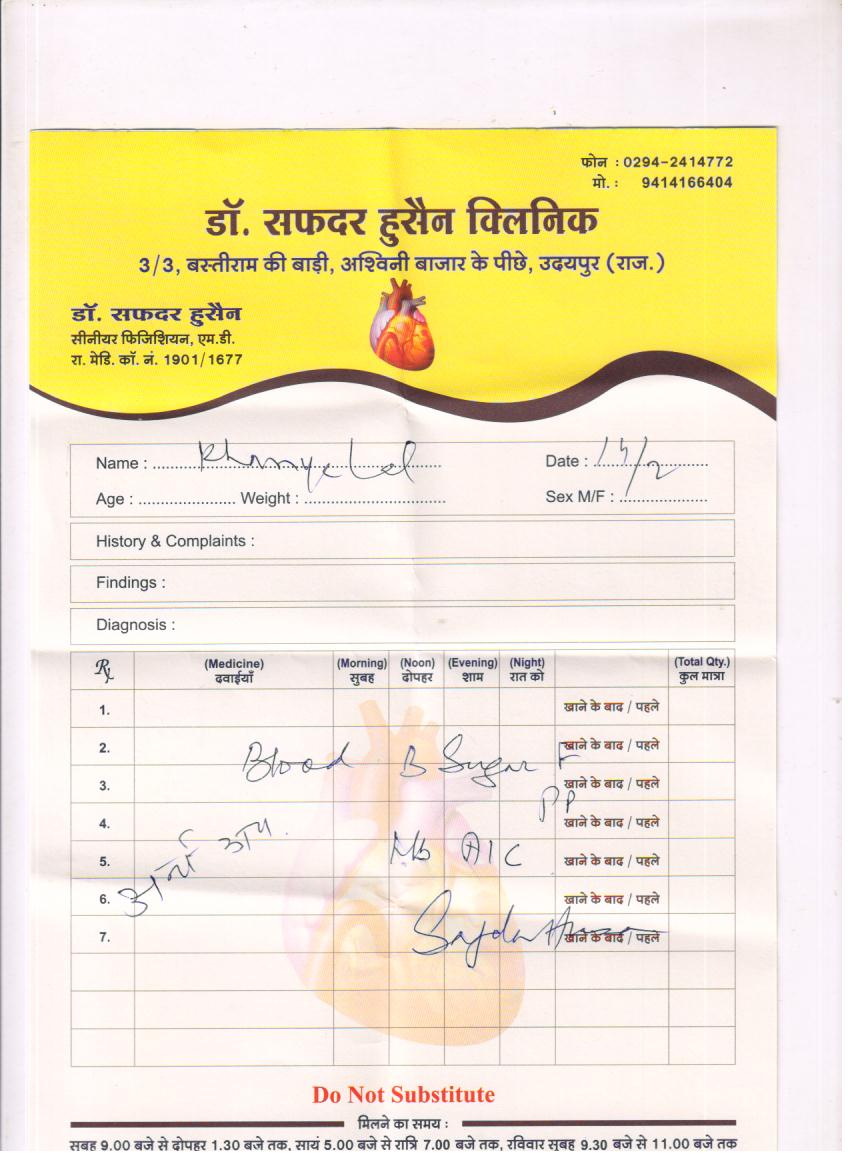 फोन : 0294-2414772
मो. : 9414166404
डॉ. सफदर हुसैन क्लिनिक
3/3, बस्तीराम की बाड़ी, अश्विनी बाजार के पीछे, उदयपुर (राज.)
डॉ. सफदर हुसैन
सीनीयर फिजिशियन, एम.डी.
रा. मेडि. कॉ. नं. 1901/1677
Name : Date :
Age : Weight : Sex M/F :
History & Complaints :
Findings :
Diagnosis :
Rx (Medicine) (Morning) (Noon) (Evening) (Night) (Total Qty.)
दवाईयाँ सुबह दोपहर शाम रात को कुल मात्रा
1. खाने के बाद / पहले
2. खाने के बाद / पहले
Blood B Sugar F
3. खाने के बाद / पहले
PP
4. खाने के बाद / पहले
5. Hb A1C खाने के बाद / पहले
6. खाने के बाद / पहले
7. खाने के बाद / पहले
Do Not Substitute
मिलने का समय :
सुबह 9.00 बजे से दोपहर 1.30 बजे तक, सायं 5.00 बजे से रात्रि 7.00 बजे तक, रविवार सुबह 9.30 बजे से 11.00 बजे तक